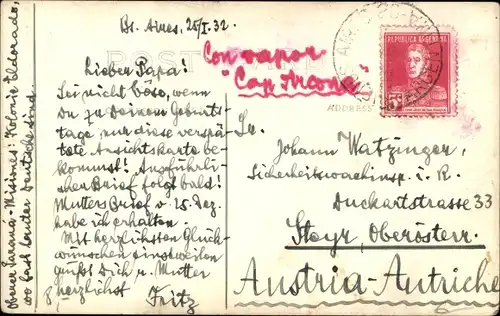 Bs. Aires, 25/I. 32.
Lieber Papa!
Sei nicht böse, wenn
Du zu Deinem Geburts-
tage nur diese verspä-
tete Ansichtskarte be-
kommst! Ausführli-
cher Brief folgt bald!
Mutters Brief v. 15. Dez.
habe ich erhalten.
Mit herzlichsten Glück-
wünschen einstweilen
grüßt Dich u. Mutter
herzlichst
Fritz
Oberer Parana-Misiones: Kolonie Eldorado,
wo fast lauter Deutsche sind.
Con vapor
"Cap Arcona"
REPUBLICA ARGENTINA
ADDRESS
Johann Watzinger,
Sicherheitswachinsp. i. R.
Duckartstrasse 33
Steyr, Oberösterr.
Austria-Autriche